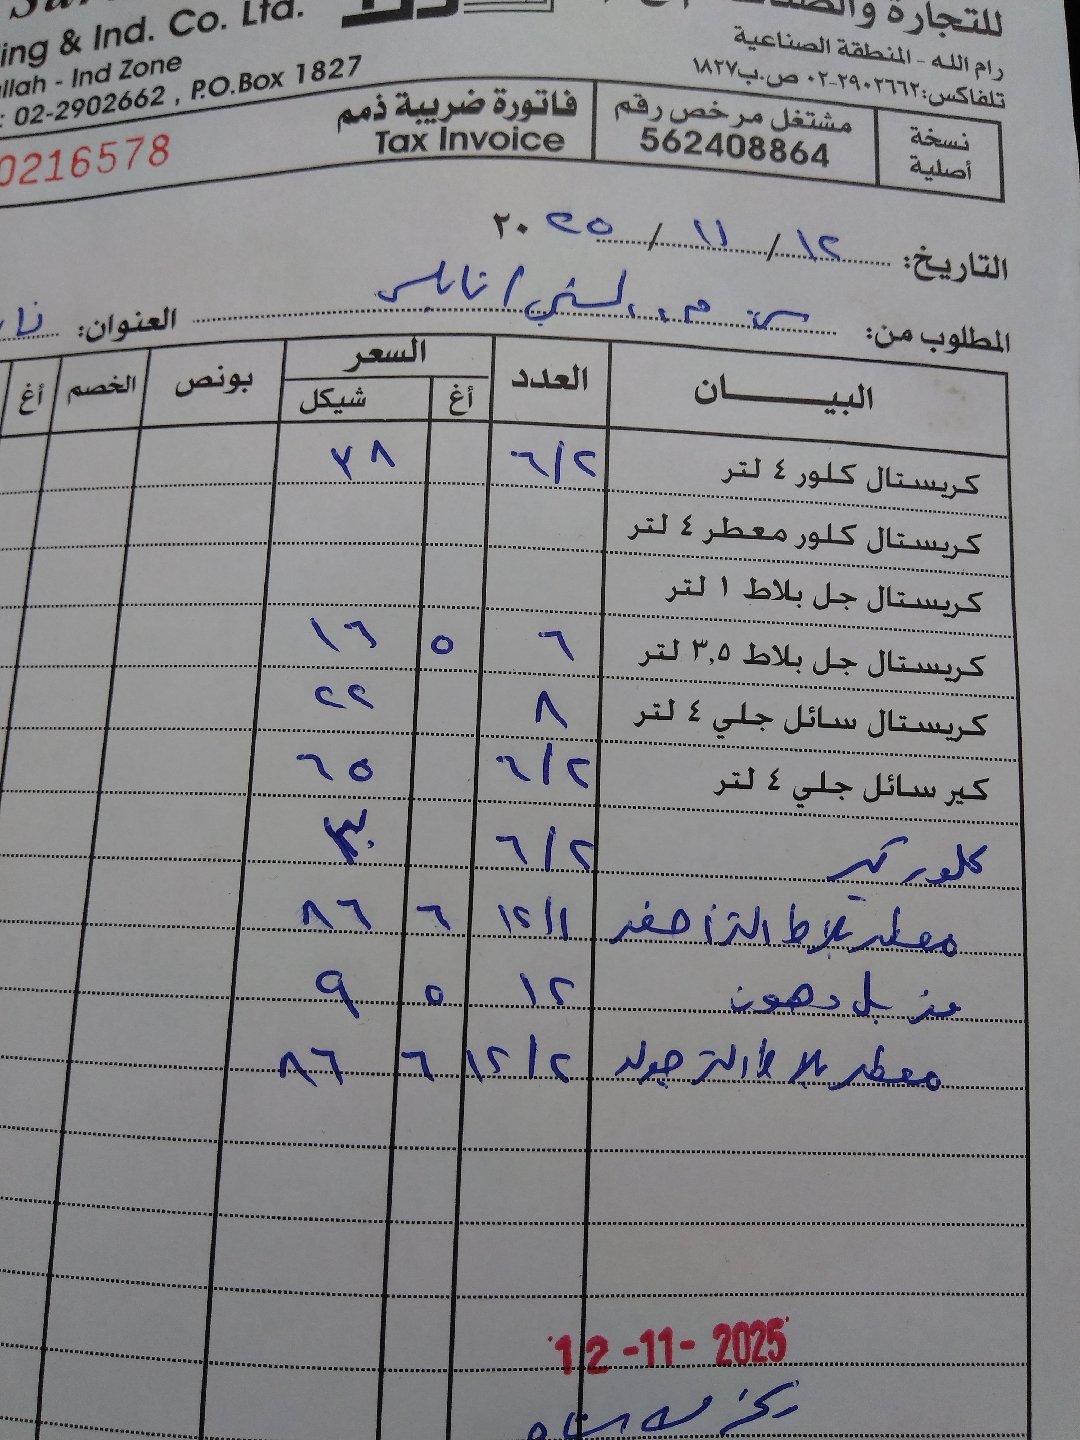 للتجارة والصناعة
ing & Ind. Co. Ltd.
رام الله - المنطقة الصناعية
allah - Ind Zone
تلفاكس: ٢٩٠٢٦٦٢-٠٢ ص.ب ١٨٢٧
: 02-2902662 , P.O.Box 1827
نسخة أصلية
مشتغل مرخص رقم
562408864
فاتورة ضريبة ذمم
Tax Invoice
0216578
التاريخ: ١٢ / ١١ / ٢٠٢٥
المطلوب من: / نابلس العنوان:
البيــــــان العدد السعر بونص الخصم أغ
أغ شيكل
كريستال كلور ٤ لتر ٦/٢ ٣٨
كريستال كلور معطر ٤ لتر
كريستال جل بلاط ١ لتر
كريستال جل بلاط ٣,٥ لتر ٦ ٥ ١٦
كريستال سائل جلي ٤ لتر ٨ ٢٢
كير سائل جلي ٤ لتر ٦/٢ ٦٥
كلور كير ٦/٢
معطر بلاط الترا أصفر ١٢/١ ٦ ٨٦
مزيل دهون ١٢ ٥ ٩
معطر بلاط الترا ١٢/٢ ٦ ٨٦
12-11-2025